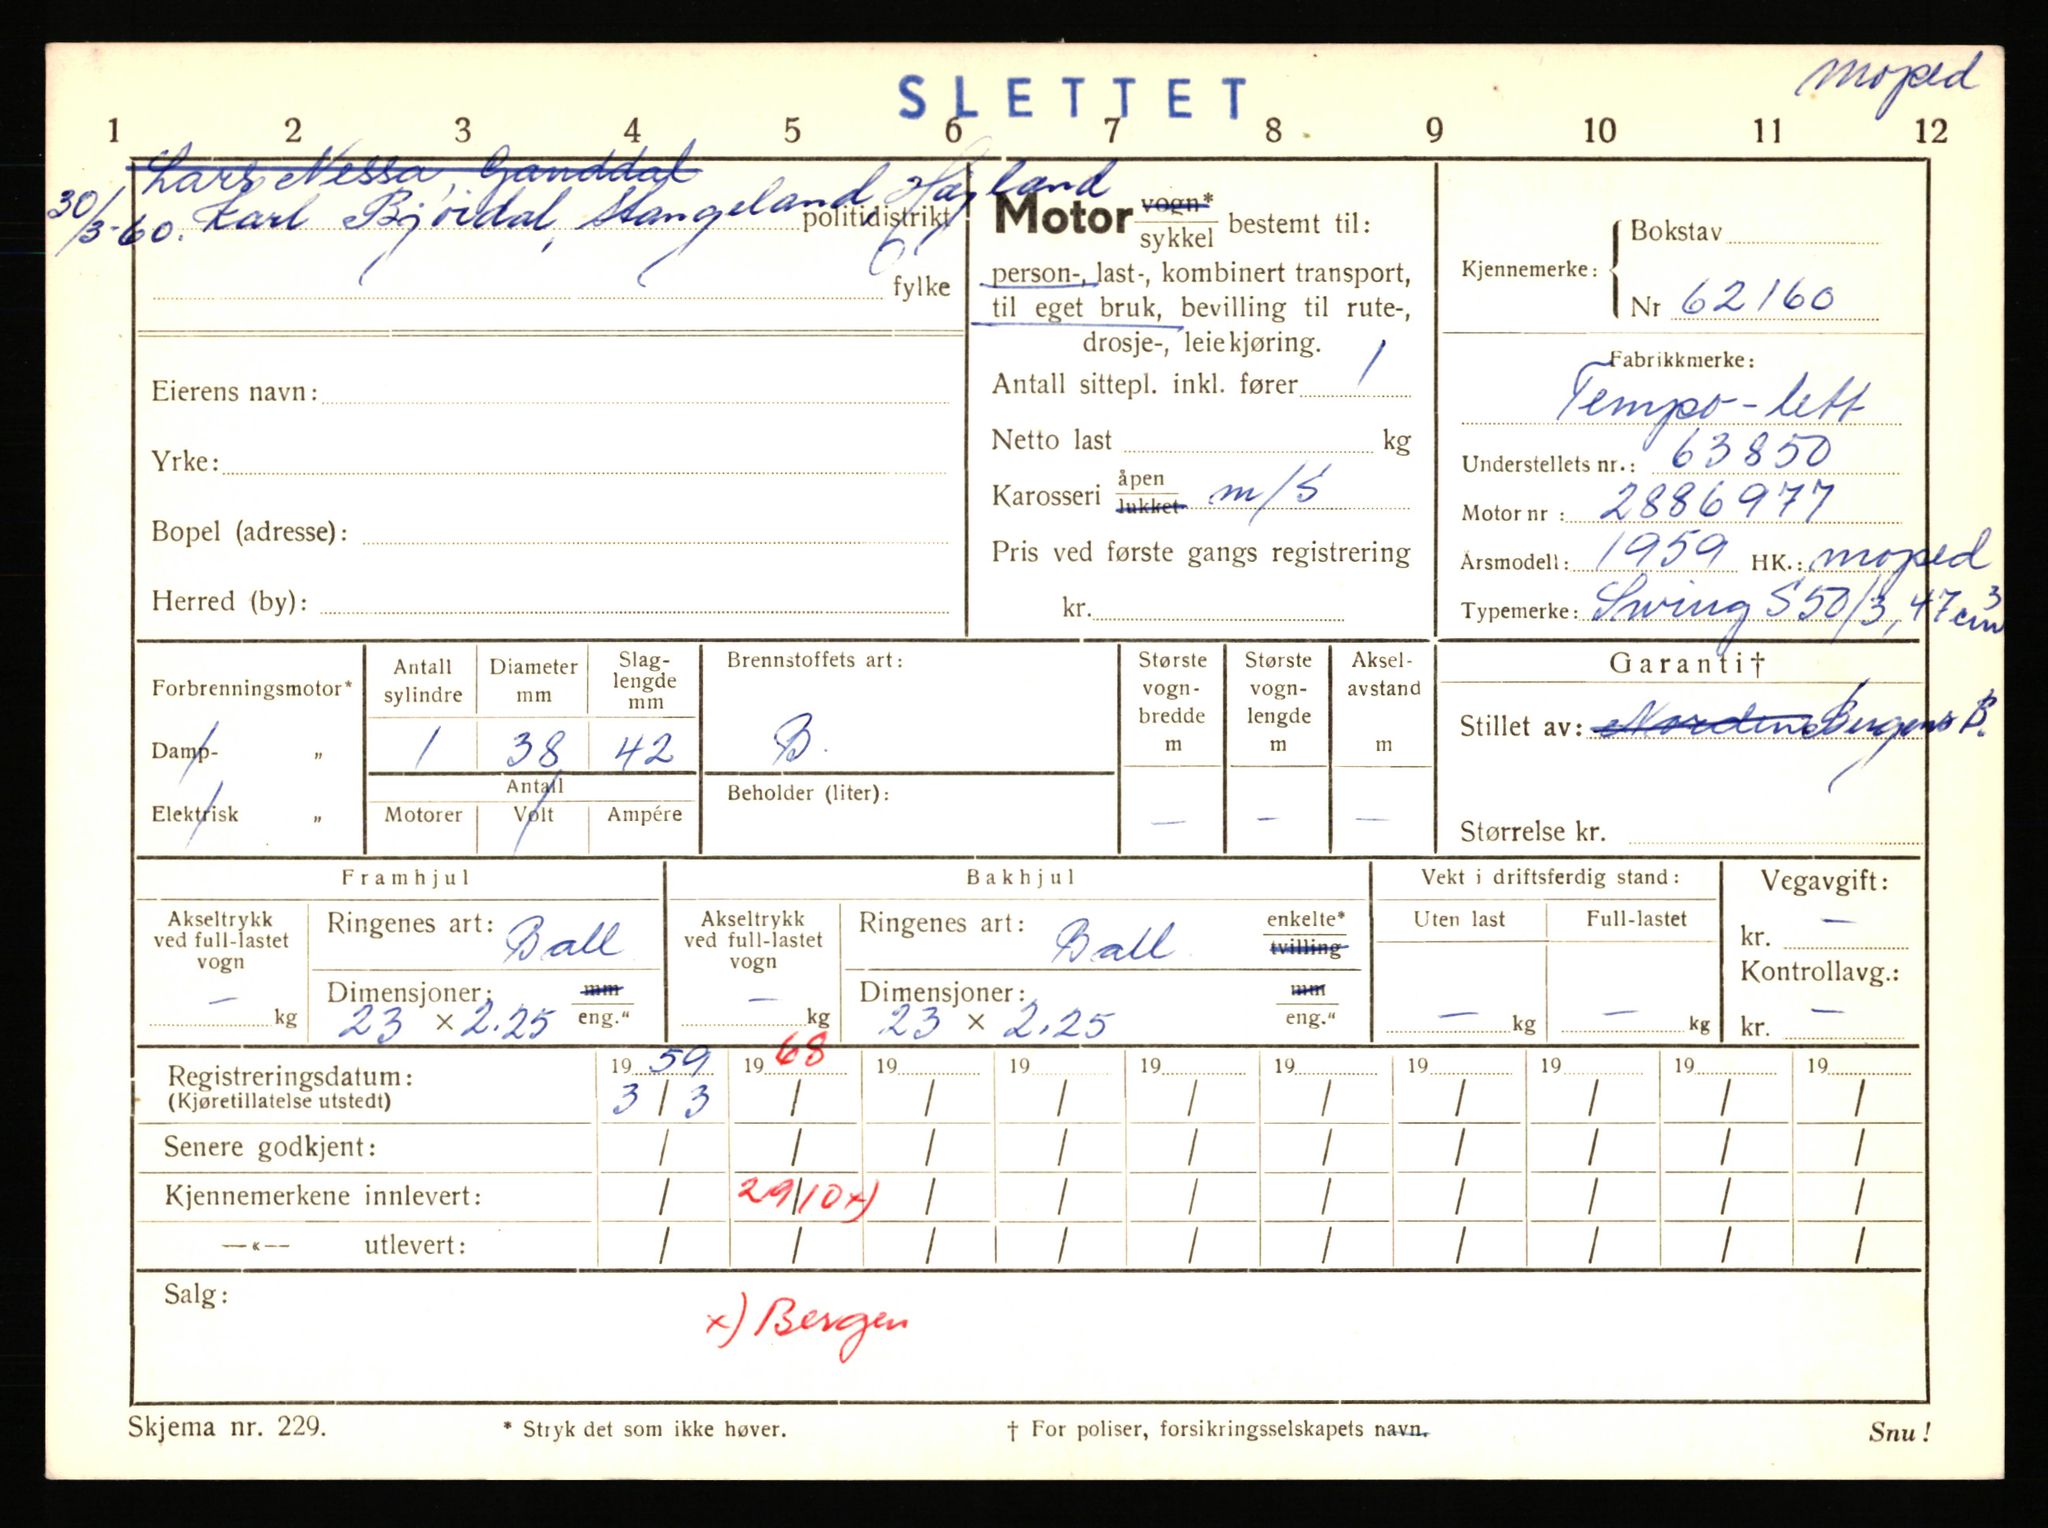 SLETTET
moped
1 2 3 4 5 6 7 8 9 10 11 12
Lars Nessa, Ganddal
30/3-60. Karl Bjørdal, Stangeland, Høyland
politidistrikt
fylke
Eierens navn:
Yrke:
Bopel (adresse):
Herred (by):
Motor vogn* sykkel bestemt til:
person-, last-, kombinert transport,
til eget bruk, bevilling til rute-,
drosje-, leiekjøring.
Antall sittepl. inkl. fører 1
Netto last kg
Karosseri åpen lukket m/s
Pris ved første gangs registrering
kr.
Kjennemerke: Bokstav
Nr 62160
Fabrikkmerke:
Tempo-lett
Understellets nr.: 63850
Motor nr: 2886977
Årsmodell: 1959 HK.: moped
Typemerke: Swing S50/3, 47 cm3
Forbrenningsmotor*
Damp- „
Elektrisk „
Antall sylindre
1
Diameter mm
38
Slaglengde mm
42
Antall
Motorer Volt Ampére
Brennstoffets art:
B.
Beholder (liter):
Største vogn-bredde m
–
Største vogn-lengde m
–
Aksel-avstand m
–
Garanti†
Stillet av: Norden Bergens B.
Størrelse kr.
Framhjul
Akseltrykk ved full-lastet vogn
– kg
Ringenes art: Ball
Dimensjoner: mm
23 x 2.25 eng."
Bakhjul
Akseltrykk ved full-lastet vogn
– kg
Ringenes art: Ball enkelte* tvilling
Dimensjoner: mm
23 x 2.25 eng."
Vekt i driftsferdig stand:
Uten last Full-lastet
– kg – kg
Vegavgift:
kr. –
Kontrollavg.:
kr. –
Registreringsdatum: 19 59 19 68 19 19 19 19 19 19 19 19
(Kjøretillatelse utstedt) 3 / 3 / / / / / / / / /
Senere godkjent: / / / / / / / / / /
Kjennemerkene innlevert: / 29/10 x) / / / / / / / /
—«— utlevert: / / / / / / / / / /
Salg:
x) Bergen
Skjema nr. 229.
* Stryk det som ikke høver.
† For poliser, forsikringsselskapets navn.
Snu!